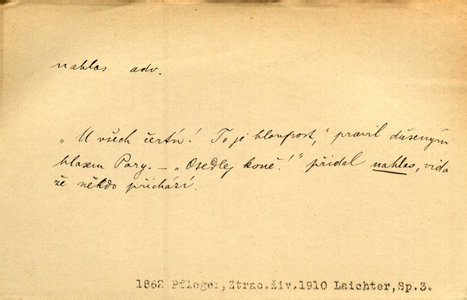 nahlas adv.
„U všech čertů! To je hloupost," pravil dušeným
hlasem Pory. — „Osedlej koně!" přidal nahlas, vida
že někdo přichází.
1862 Pfleger,Ztrac.živ.1910 Laichter,Sp.3.